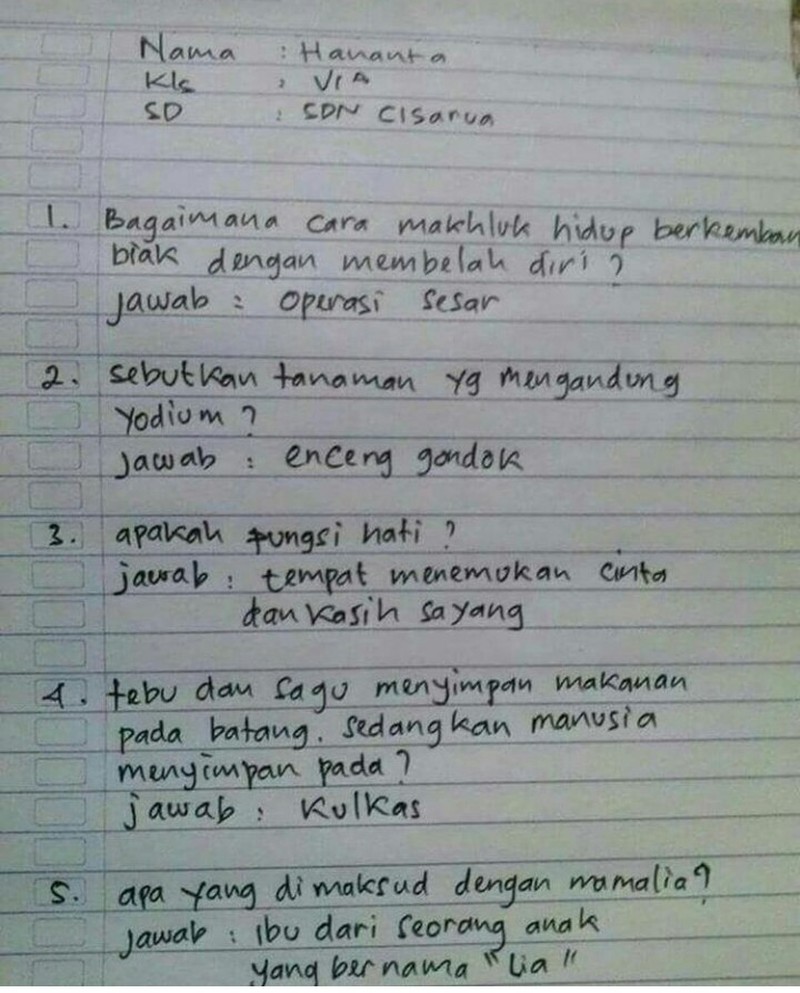 Nama : Hananta
Kls : VI A
SD : SDN Cisarua
1. Bagaimana cara makhluk hidup berkemban
biak dengan membelah diri ?
jawab : operasi sesar
2. sebutkan tanaman yg mengandung
yodium ?
jawab : enceng gondok
3. apakah fungsi hati ?
jawab : tempat menemukan cinta
dan kasih sayang
4. tebu dan sagu menyimpan makanan
pada batang. sedangkan manusia
menyimpan pada ?
jawab : kulkas
5. apa yang dimaksud dengan mamalia ?
jawab : ibu dari seorang anak
yang bernama "Lia"